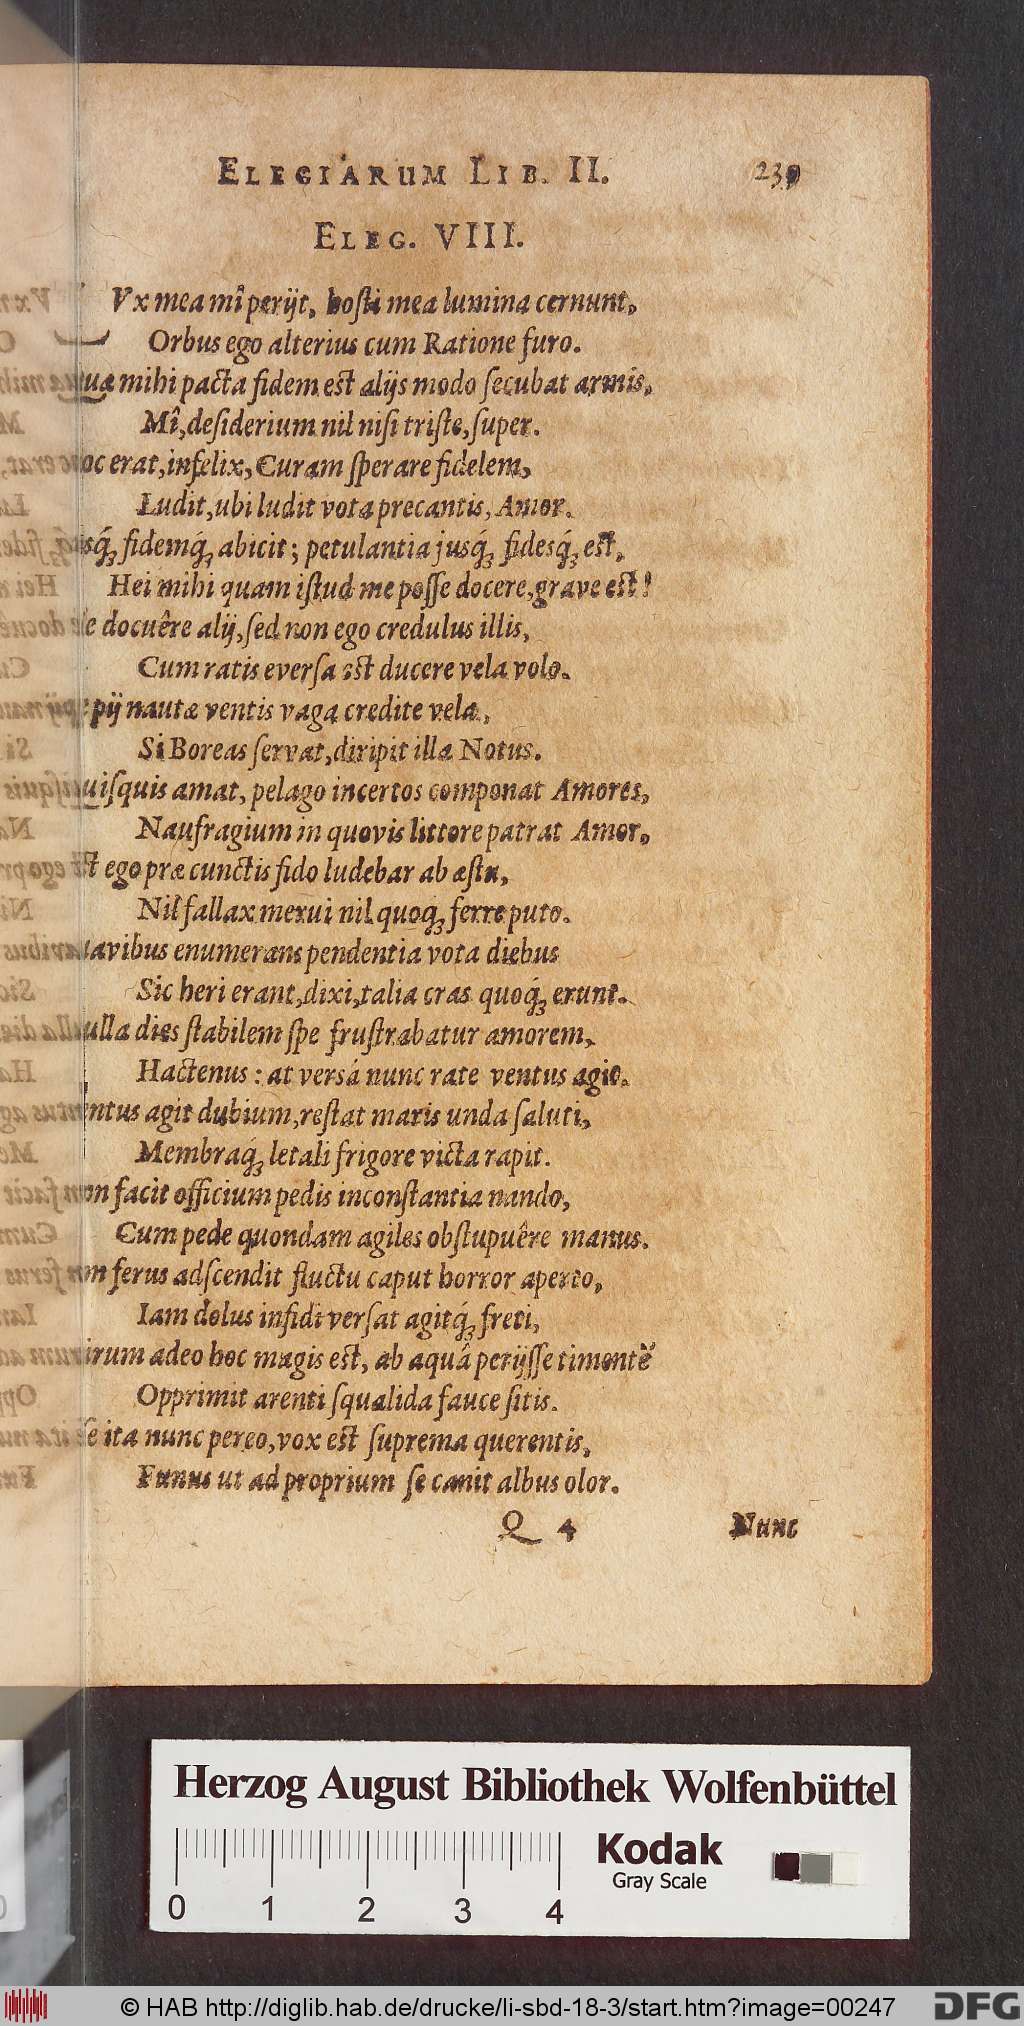 ELEGIARUM LIB. II. 239
ELEG. VIII.
Vx mea mî perijt, hosti mea lumina cernunt,
Orbus ego alterius cum Ratione furo.
mihi pacta fidem est alijs modo secubat armis,
Mî, desiderium nil nisi triste, super.
erat, infelix, Curam sperare fidelem,
Ludit, ubi ludit vota precantis, Amor.
fidemq́; abicit; petulantia jusq́; fidesq́; est,
Hei mihi quam istud me posse docere, grave est!
docuêre alij, sed non ego credulus illis,
Cum ratis eversa est ducere vela volo.
pij nautæ ventis vaga credite vela,
Si Boreas servat, diripit illa Notus.
uisquis amat, pelago incertos componat Amores,
Naufragium in quovis littore patrat Amor,
ego præ cunctis fido ludebar ab æstu,
Nil fallax merui nil quoq́; ferre puto.
avibus enumerans pendentia vota diebus
Sic heri erant, dixi, talia cras quoq́; erunt.
ulla dies stabilem spe frustrabatur amorem,
Hactenus: at versâ nunc rate ventus agit.
entus agit dubium, restat maris unda saluti,
Membraq́; letali frigore victa rapit.
non facit officium pedis inconstantia nando,
Cum pede quondam agiles obstupuêre manus.
ferus adscendit fluctu caput horror aperto,
Iam dolus infidi versat agitq́; freti,
irum adeo hoc magis est, ab aquâ perijsse timentē
Opprimit arenti squalida fauce sitis.
ita nunc pereo, vox est suprema querentis,
Funus ut ad proprium se canit albus olor.
Q 4 Nunc
Herzog August Bibliothek Wolfenbüttel
Kodak
Gray Scale
0 1 2 3 4
© HAB http://diglib.hab.de/drucke/li-sbd-18-3/start.htm?image=00247
DFG